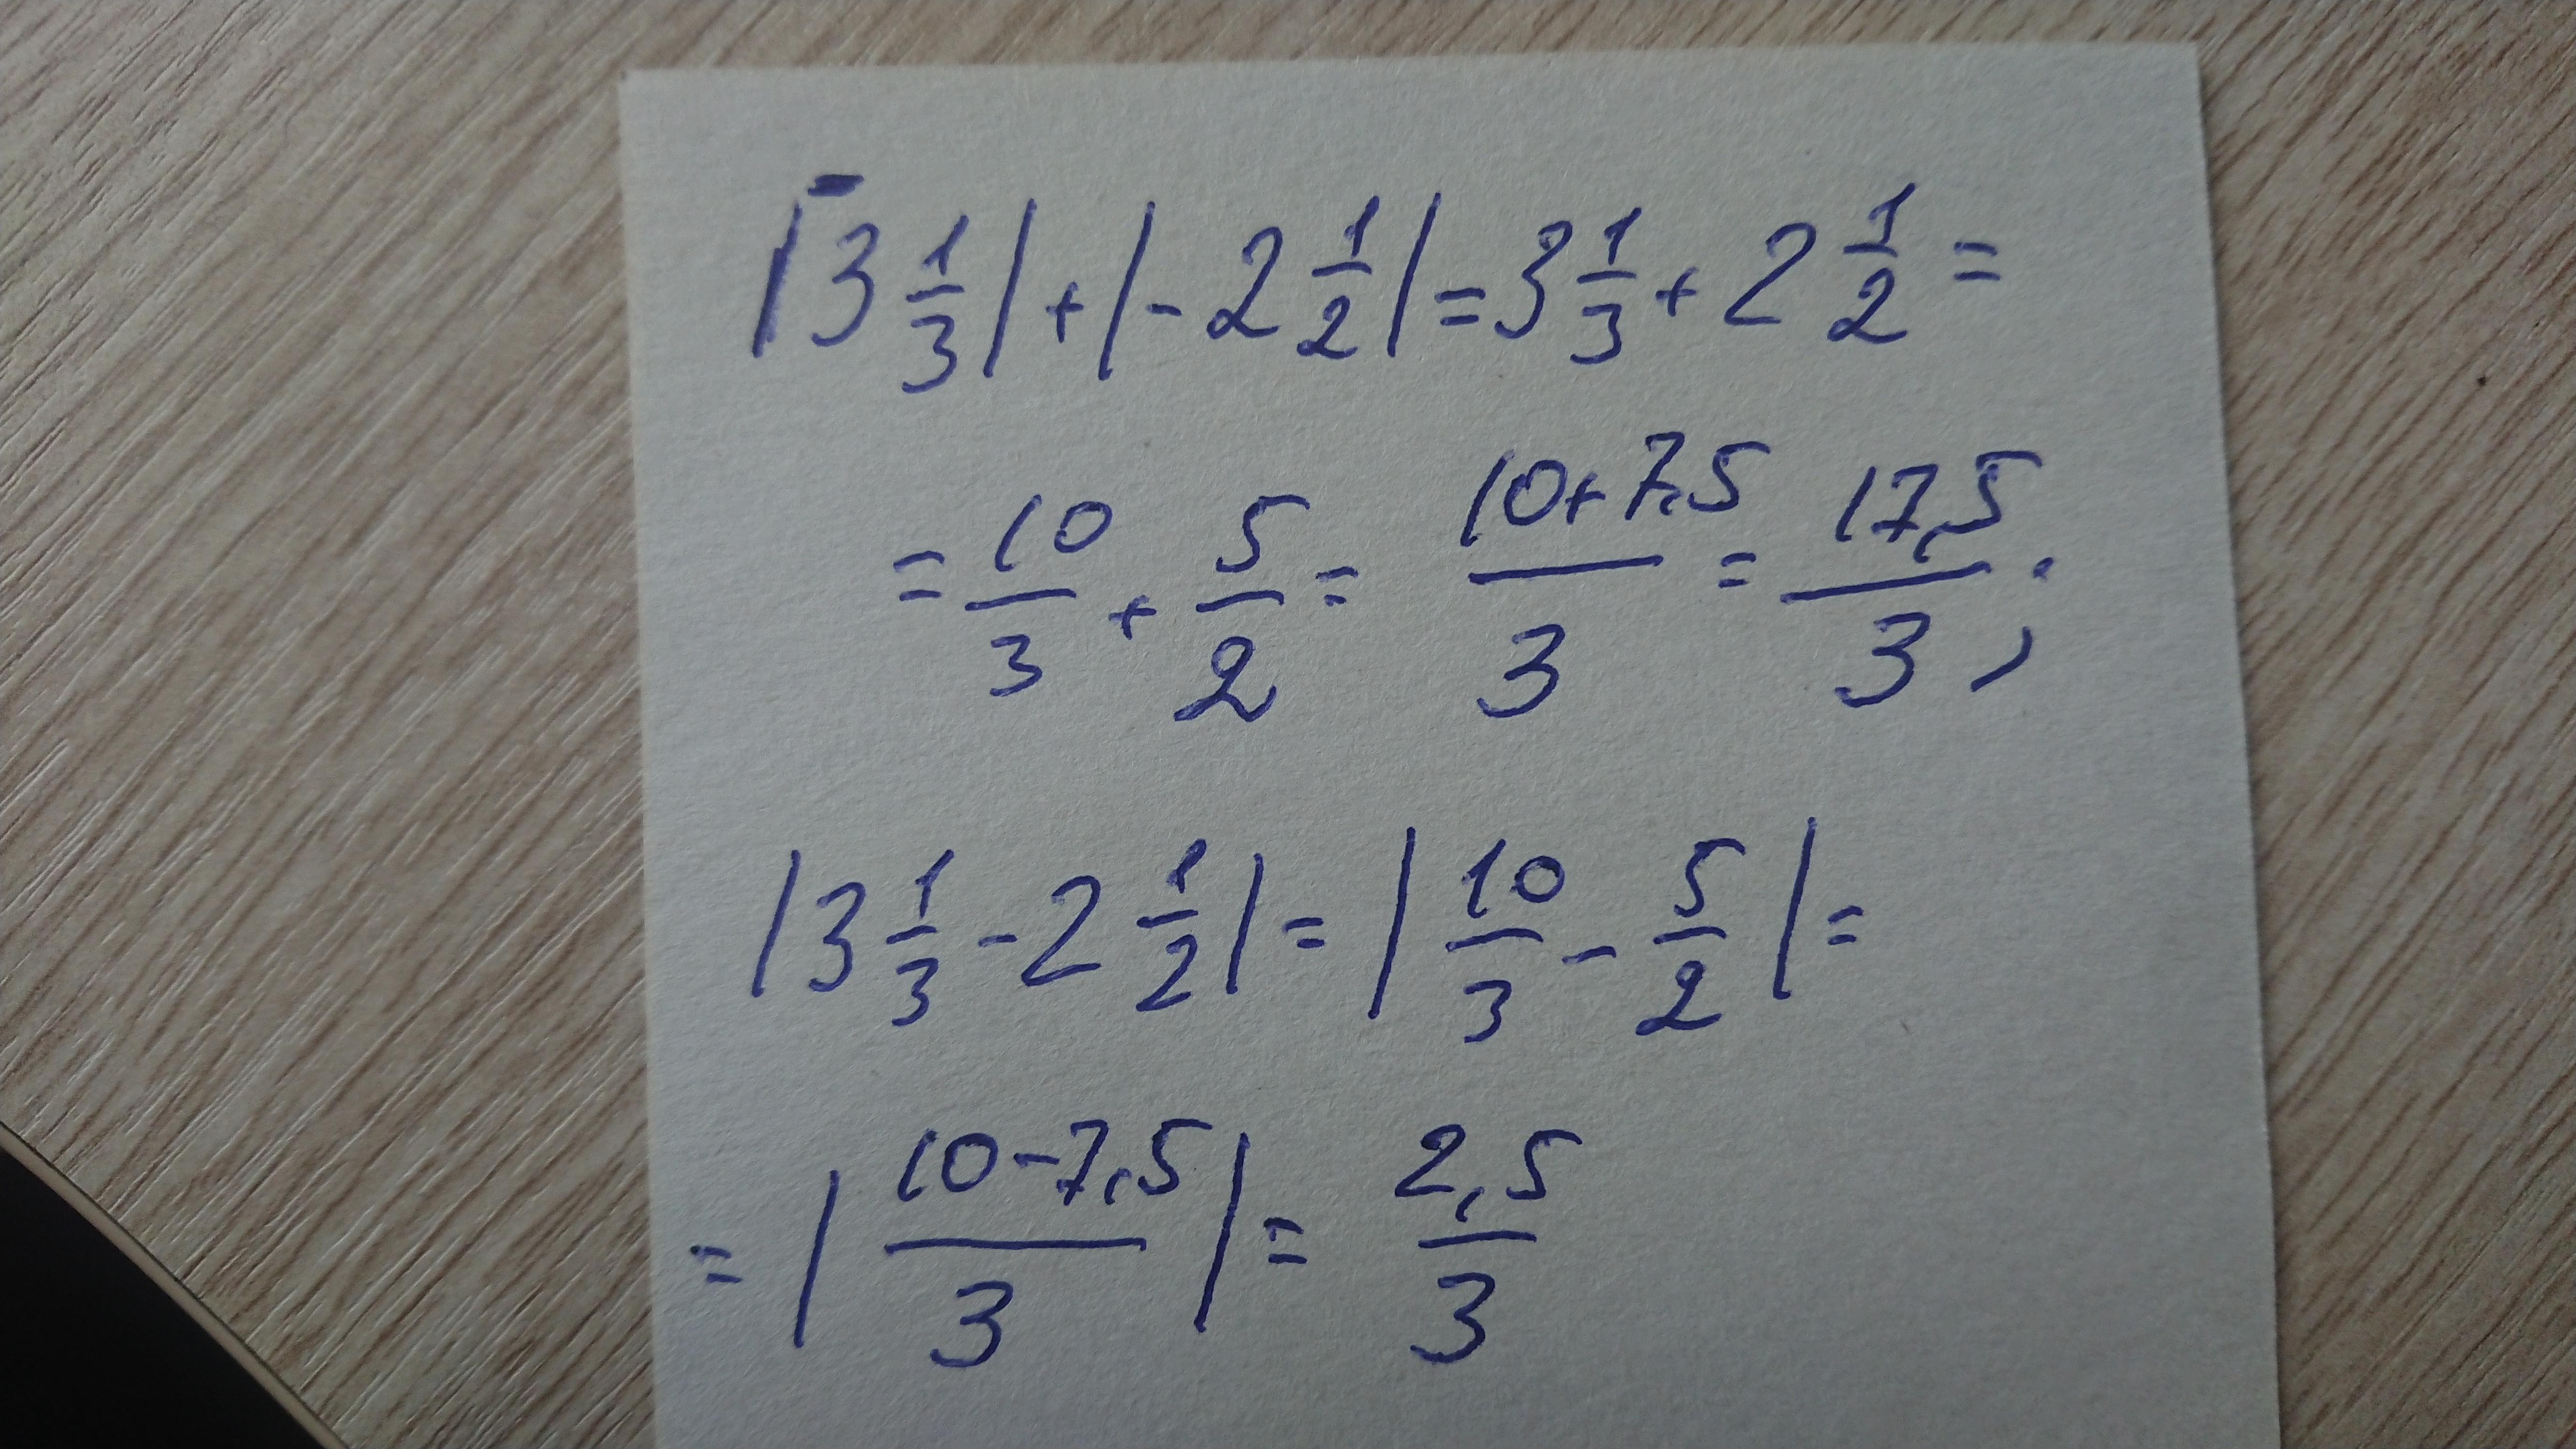 |⁻3 1/3| + |-2 1/2| = 3 1/3 + 2 1/2 =
= 10/3 + 5/2 = (10+7,5)/3 = 17,5/3;
|3 1/3 - 2 1/2| = |10/3 - 5/2| =
= |(10-7,5)/3| = 2,5/3